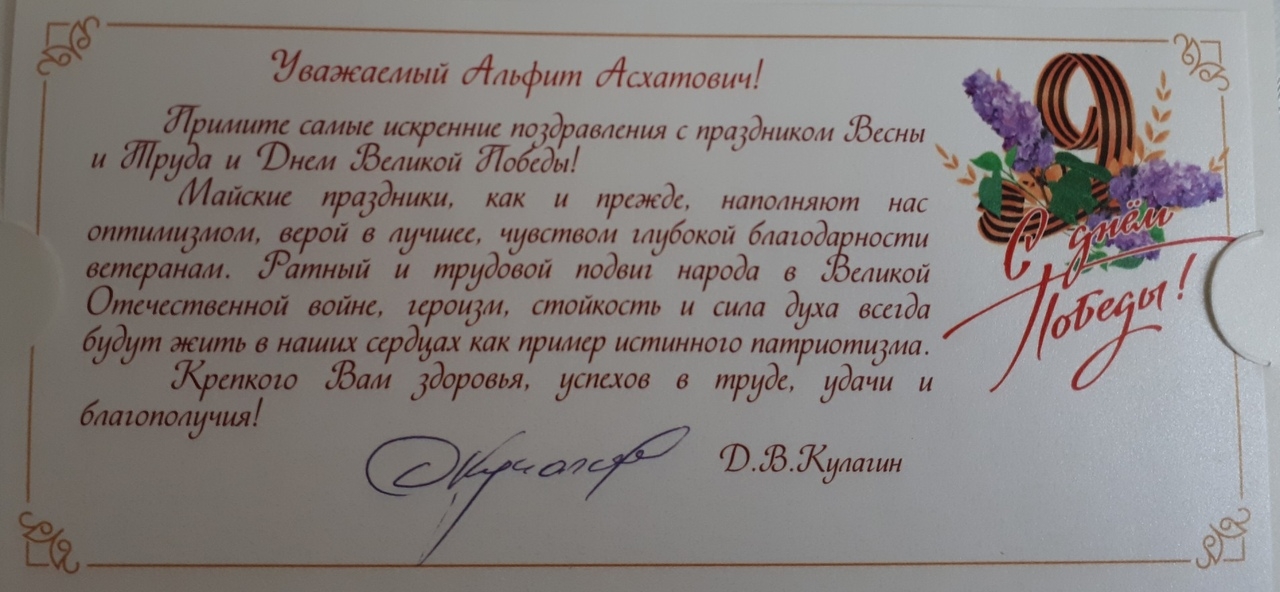 Уважаемый Альфит Асхатович!
Примите самые искренние поздравления с праздником Весны
и Труда и Днем Великой Победы!
Майские праздники, как и прежде, наполняют нас
оптимизмом, верой в лучшее, чувством глубокой благодарности
ветеранам. Ратный и трудовой подвиг народа в Великой
Отечественной войне, героизм, стойкость и сила духа всегда
будут жить в наших сердцах как пример истинного патриотизма.
Крепкого Вам здоровья, успехов в труде, удачи и
благополучия!
Д.В.Кулагин
9
С днём
Победы!